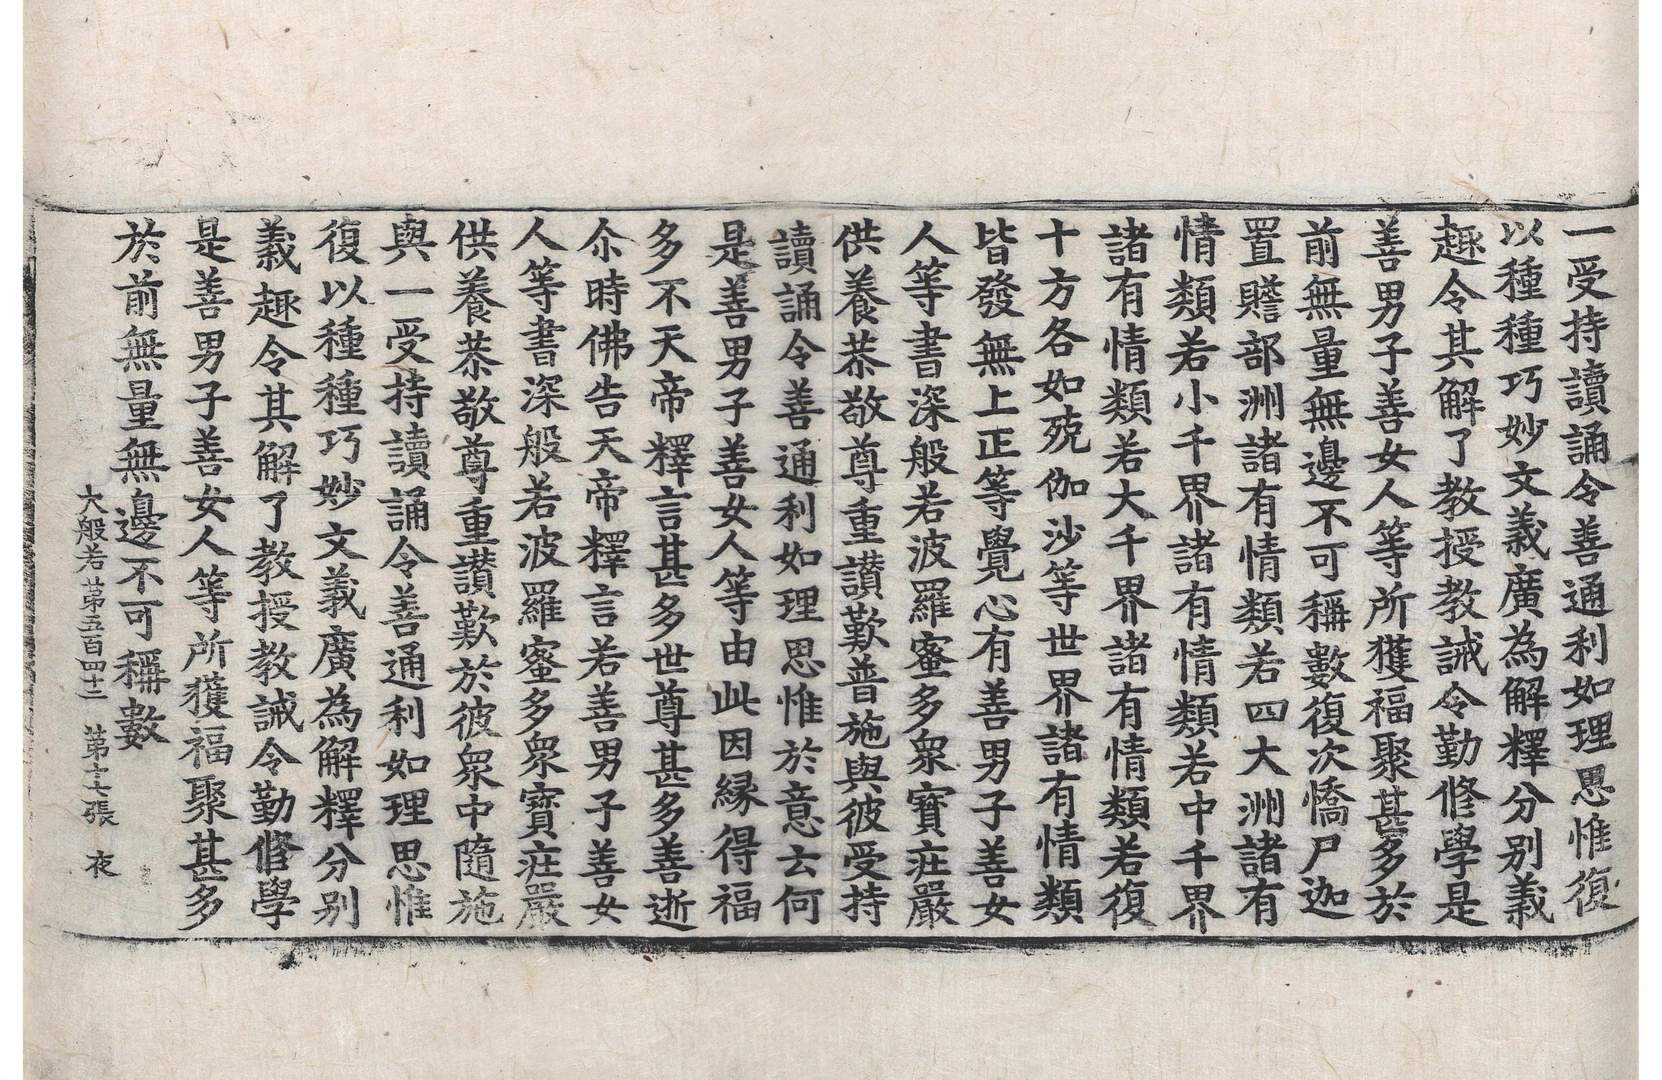 一受持讀誦令善通利如理思惟復
以種種巧妙文義廣為解釋分別義
趣令其解了教授教誡令勤修學是
善男子善女人等所獲福聚甚多於
前無量無邊不可稱數復次憍尸迦
置贍部洲諸有情類若四大洲諸有
情類若小千界諸有情類若中千界
諸有情類若大千界諸有情類若復
十方各如殑伽沙等世界諸有情類
皆發無上正等覺心有善男子善女
人等書深般若波羅蜜多衆寶莊嚴
供養恭敬尊重讃歎普施與彼受持
讀誦令善通利如理思惟於意云何
是善男子善女人等由此因緣得福
多不天帝釋言甚多世尊甚多善逝
尒時佛告天帝釋言若善男子善女
人等書深般若波羅蜜多衆寶莊嚴
供養恭敬尊重讃歎於彼衆中隨施
與一受持讀誦令善通利如理思惟
復以種種巧妙文義廣為解釋分別
義趣令其解了教授教誡令勤修學
是善男子善女人等所獲福聚甚多
於前無量無邊不可稱數
大般若苐五百四十二 苐十七張 夜